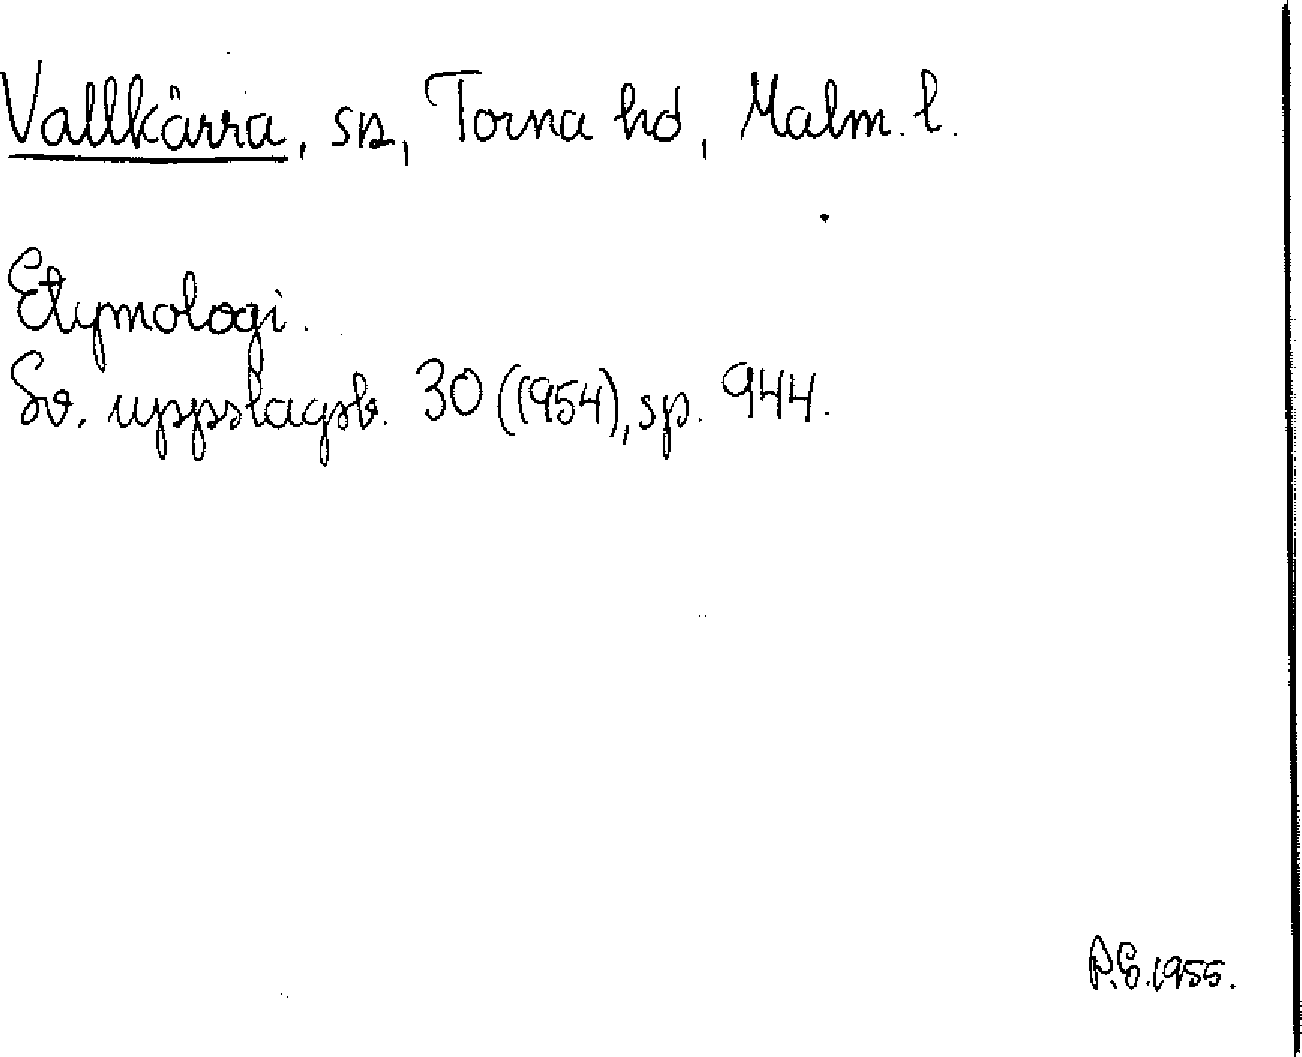 Vallkärra, sn, Torna hd, Malm. l.
Etymologi.
Sv. uppslagsb. 30 (1954), sp. 944.
P.E. 1955.